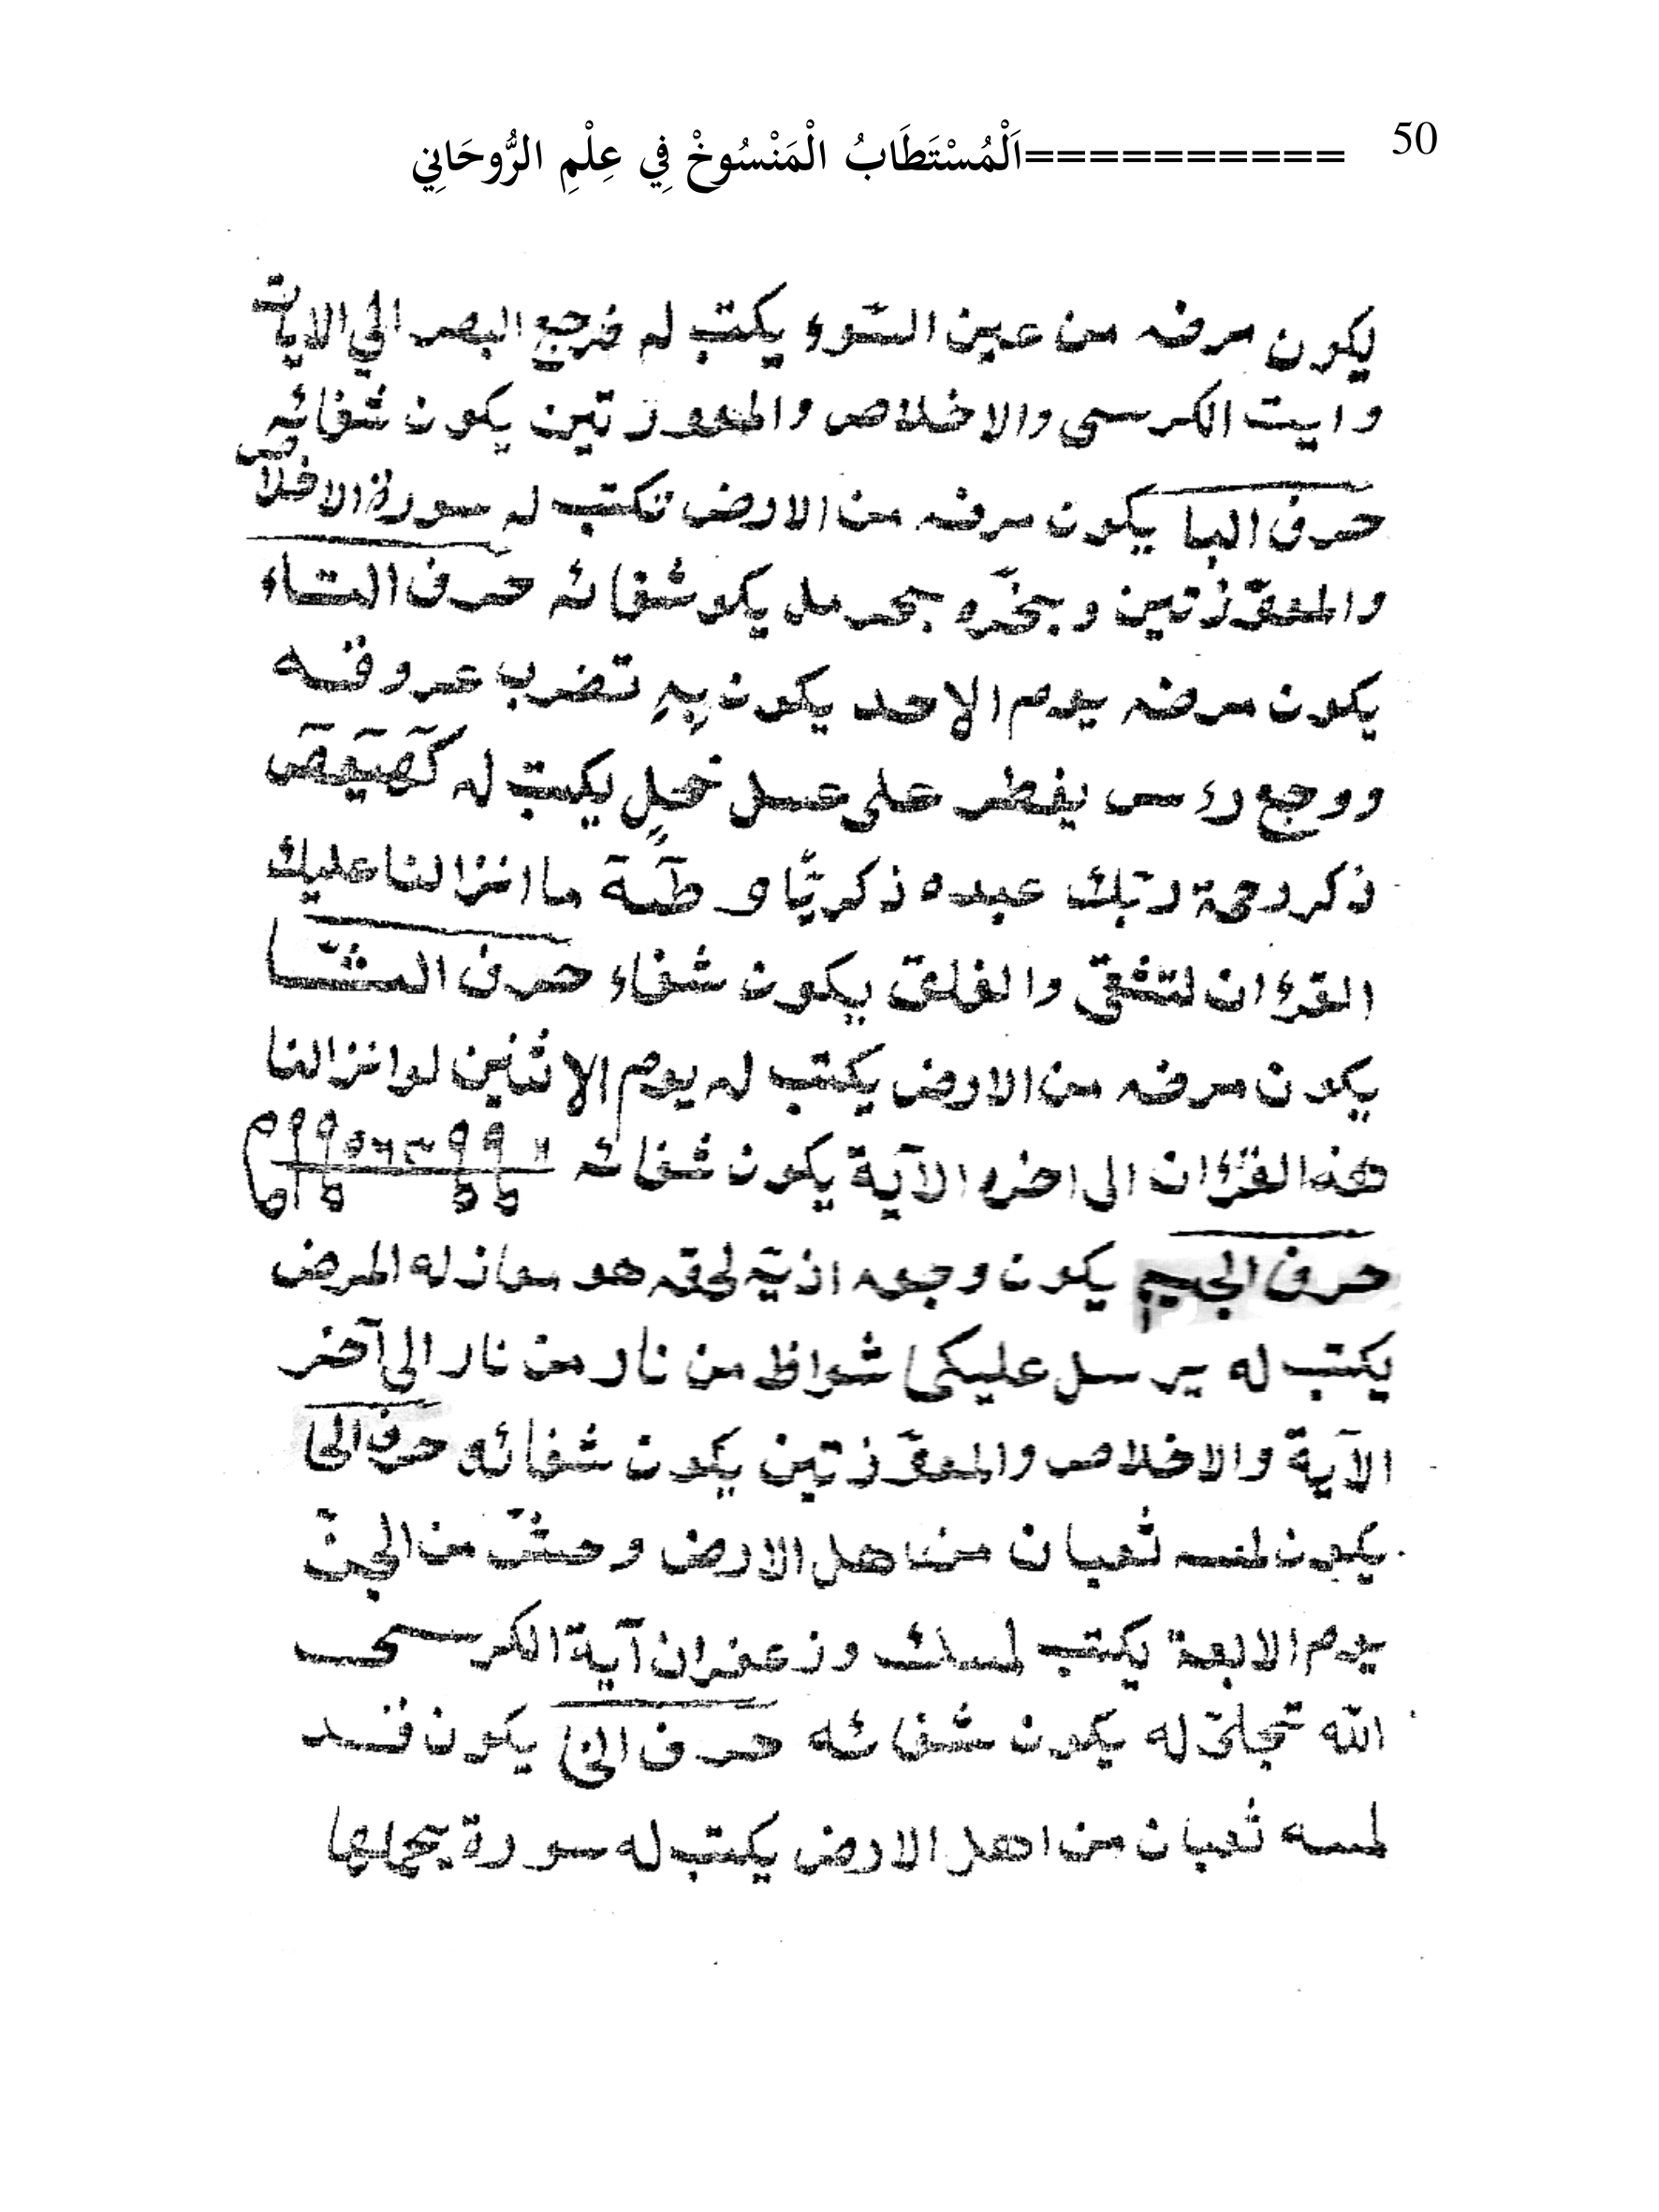 50 ==========اَلْمُسْتَطَابُ الْمَنْسُوخْ فِي عِلْمِ الرُّوحَانِي
يكون مرضه من عين السّوء يكتب له فرجع البصر الي الاياة
وايت الكرسي والاخلاص والمعوذتين يكون شفائه
حرف البا يكون مرضه من الارض تكتب له سورة الاخلاص
والمعوّذتين وبخّره بحرمل يكو شفائه حرف التاء
يكون مرضه يوم الاحد يكون بِهِ تضرب عروقه
ووجع رءس يفطر على عسل نحيلٍ يكتب له كٓهٓيٓعٓصٓ
ذكر رحمة ربّك عبده ذكريّا و طٓهٓ ما انزالنا عليك
القرءان لتشقى والفلق يكون شفاء حرف الثّا
يكون مرضه من الارض يكتب له يوم الاثنين لوانزالنا
هذه القرءان الى اخره الآية يكون شفائه
حرف الجيم يكون وجعه اذيّة لحقه هو له المرض
يكتب له يرسل عليكما شواظ من نار من نار الى آخر
الآية والاخلاص والمعوّذتين يكون شفائه حرف الحا
يكون لمسه ثعبان من اهل الارض من الجنّ
يوم الابعة يكتب لمسك وزعفران آية الكرسي
الله له يكون شفائه حرف الخا يكون قد
لمسه ثعبان من اهل الارض يكتب له سورة يحملها